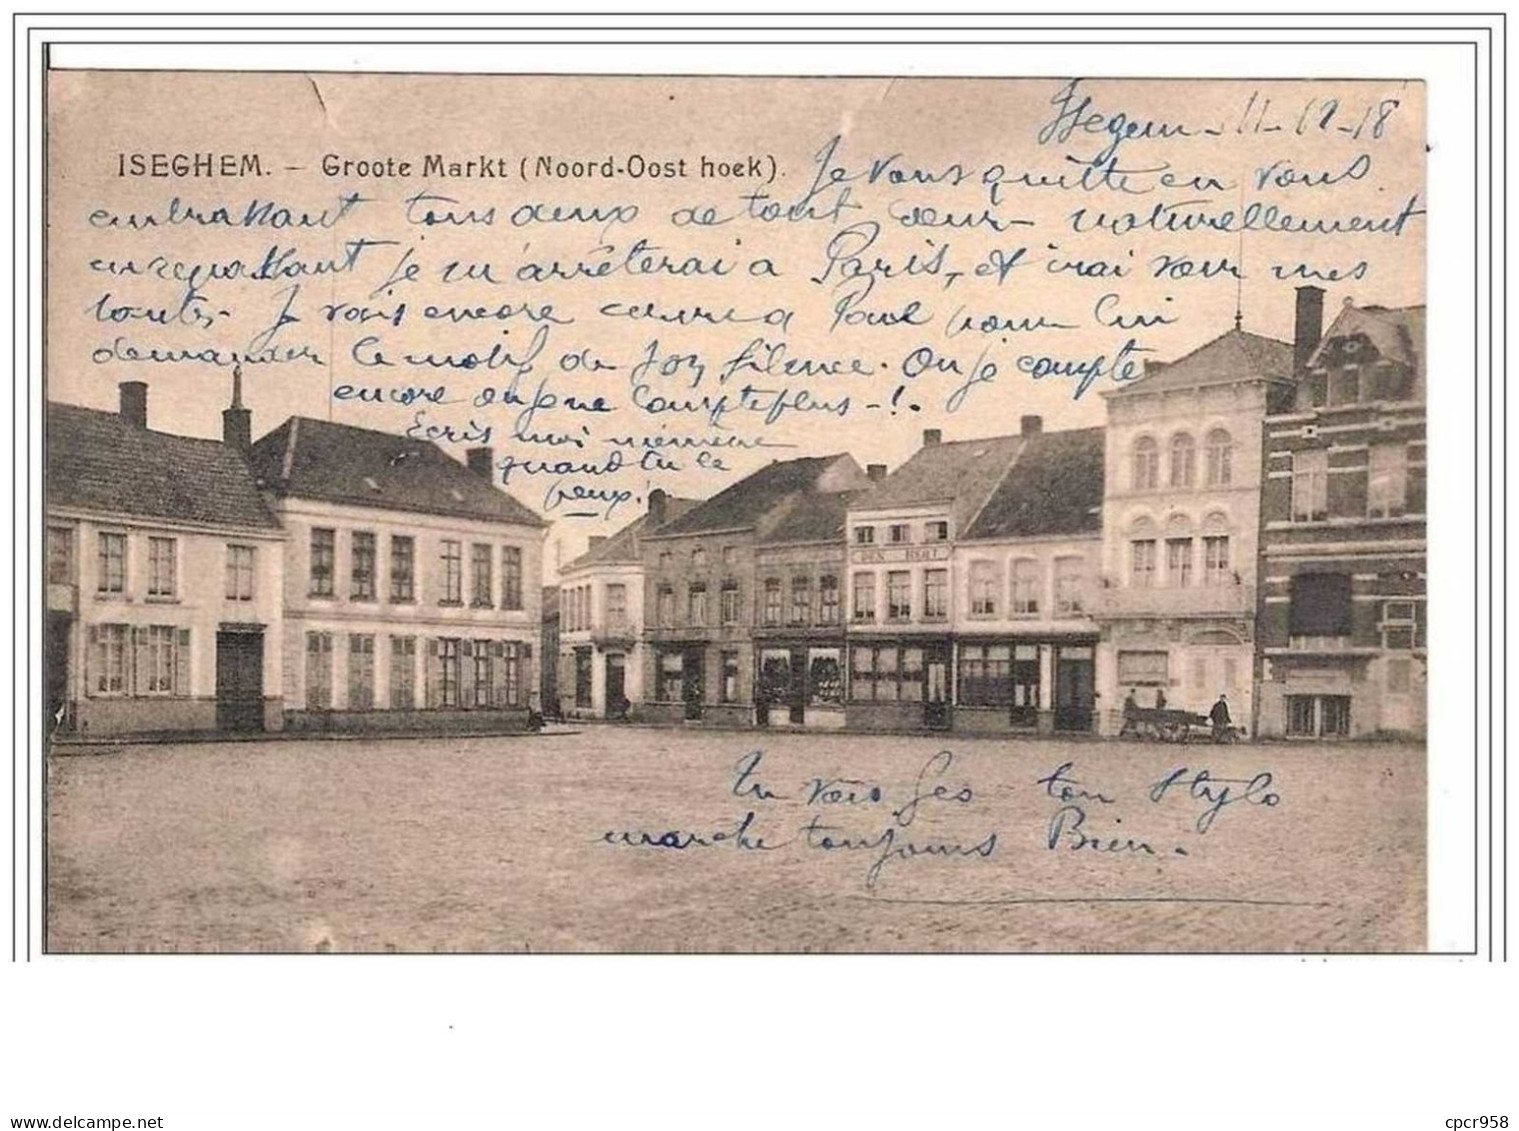 Isegem - 11-12-18
ISEGHEM. - Groote Markt (Noord-Oost hoek).
Je vous quitte en vous
embrassant tous deux de tout cœur naturellement
en repassant je m'arrêterai a Paris, et irai voir mes
tantes. Je vais encore écrire a Paul pour lui
demander le motif de son silence. Ou je compte
encore ou je ne compte plus -!.
Ecris moi même
quand tu le
peux!
DEN HERT
Tu vois Geo ton Stylo
marche toujours Bien.
delcampe.net
cpcr958